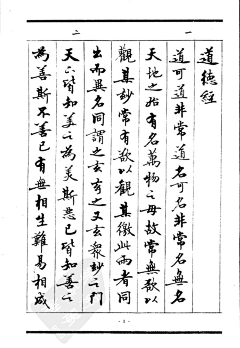 一
二
道德經
道可道非常道名可名非常名無名
天地之始有名萬物之母故常無欲以
觀其妙常有欲以觀其徼此兩者同
出而異名同謂之玄玄之又玄眾妙之門
天下皆知美之為美斯惡已皆知善之
為善斯不善已有無相生難易相成